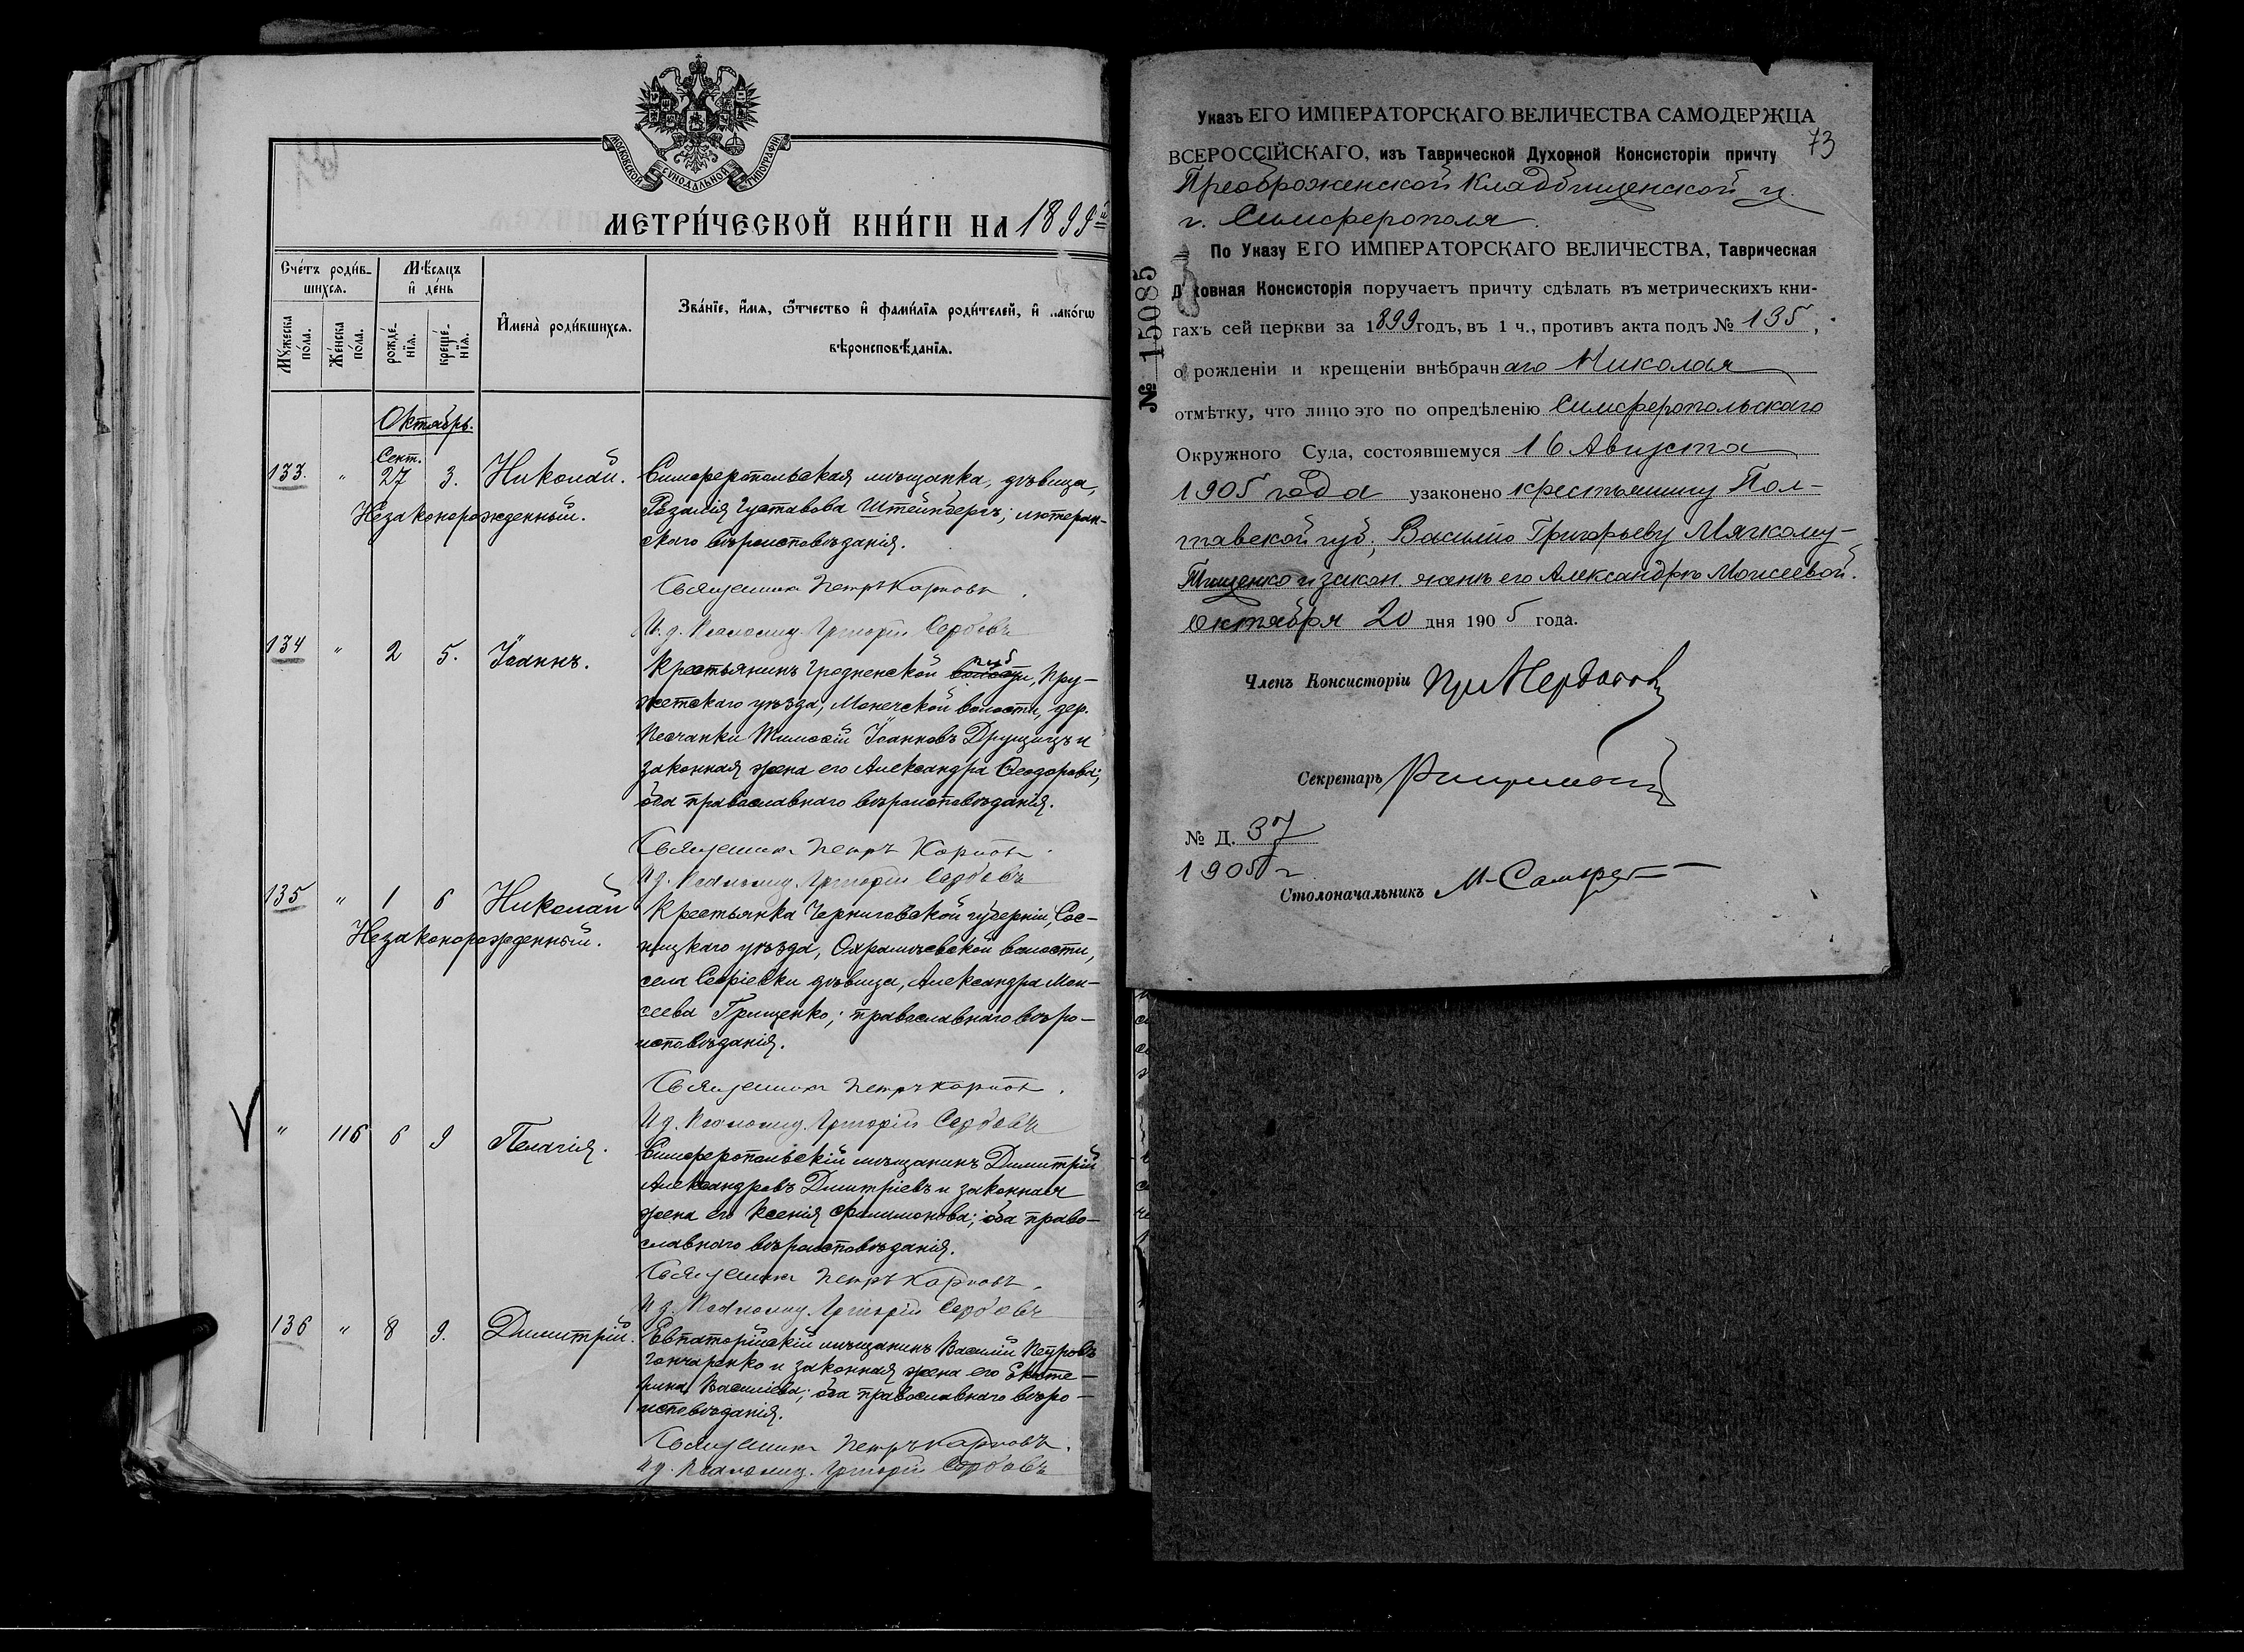 МОСКОВСКОЙ СѴНОДАЛЬНОЙ ТИПОГРАФІИ
МЕТРИ́ЧЕСКОЙ КНИ́ГИ НА 1899й
Сче́тъ роди́в-
шихсѧ.
Мѣ́сѧцъ
и҆ де́нь
Мꙋ́жеска
по́ла.
Же́нска
по́ла.
рожде́-
нїѧ.
креще́-
нїѧ.
И҆мена̀ роди́вшихсѧ.
Зва́нїе, и҆́мѧ, ѻ҆́тчество и҆ фами́лїѧ роди́телей, и҆ како́гѡ
вѣроисповѣ́данїѧ.
Октябрь.
Сент.
133. " 27 3. Николай. Симферопольская мѣщанка, дѣвица,
Незаконорожденный. Розалія Густавова Штейнбергъ; лютеран-
скаго вѣроисповѣданія.
Священникъ Петръ Карповъ.
И. д. Псаломщ. Григорій Сербовъ
134 " 2 5. Іоаннъ. Крестьянинъ Гродненской волости губ, Пру-
жетскаго уѣзда, Матечской волости, дер.
Песчанки Тимоѳій Іоанновъ Друщицъ и
законная жена его Александра Ѳеодорова;
оба православнаго вѣроисповѣданія.
Священникъ Петръ Карповъ.
И. д. Псаломщ. Григорій Сербовъ
135 " 1 6 Николай Крестьянка Черниговской губерніи, Сос-
Незаконорожденный. ницкаго уѣзда, Охрамѣевской волости,
села Софіевки дѣвица, Александра Мои-
сеева Грищенко; православнаго вѣро-
исповѣданія.
Священникъ Петръ Карповъ.
И. д. Псаломщ. Григорій Сербовъ
" 116 6 9 Пелагія. Симферопольскій мѣщанинъ Димитрій
Александровъ Димитріевъ и законная
жена его Ксенія Филимонова; оба право-
славнаго вѣроисповѣданія.
Священникъ Петръ Карповъ.
И. д. Псаломщ. Григорій Сербовъ
136 " 8 9. Димитрій. Евпаторійскій мѣщанинъ Василій Петровъ
Гончаренко и законная жена его Екате-
рина Василіева; оба православнаго вѣро-
исповѣданія.
Священникъ Петръ Карповъ.
И. д. Псаломщ. Григорій Сербовъ
73
Указъ ЕГО ИМПЕРАТОРСКАГО ВЕЛИЧЕСТВА САМОДЕРЖЦА
ВСЕРОССІЙСКАГО, изъ Таврической Духовной Консисторіи причту
Преображенской Кладбищенской ц.
г. Симферополя.
По Указу ЕГО ИМПЕРАТОРСКАГО ВЕЛИЧЕСТВА, Таврическая
Духовная Консисторія поручаетъ причту сдѣлать въ метрическихъ кни-
гахъ сей церкви за 1899 годъ, въ 1 ч., противъ акта подъ № 135,
о рожденіи и крещеніи внѣбрачнаго Николая
отмѣтку, что лицо это по опредѣленію Симферопольскаго
Окружного Суда, состоявшемуся 16 Августа
1905 года узаконено крестьянину Пол-
тавской губ., Василію Григорьеву Мягкому-
Тищенко и закон. женѣ его Александрѣ Моисеевой.
Октября 20 дня 1905 года.
№ 15085
Членъ Консисторіи
Секретарь
№ Д. 37
1905 г
Столоначальникъ